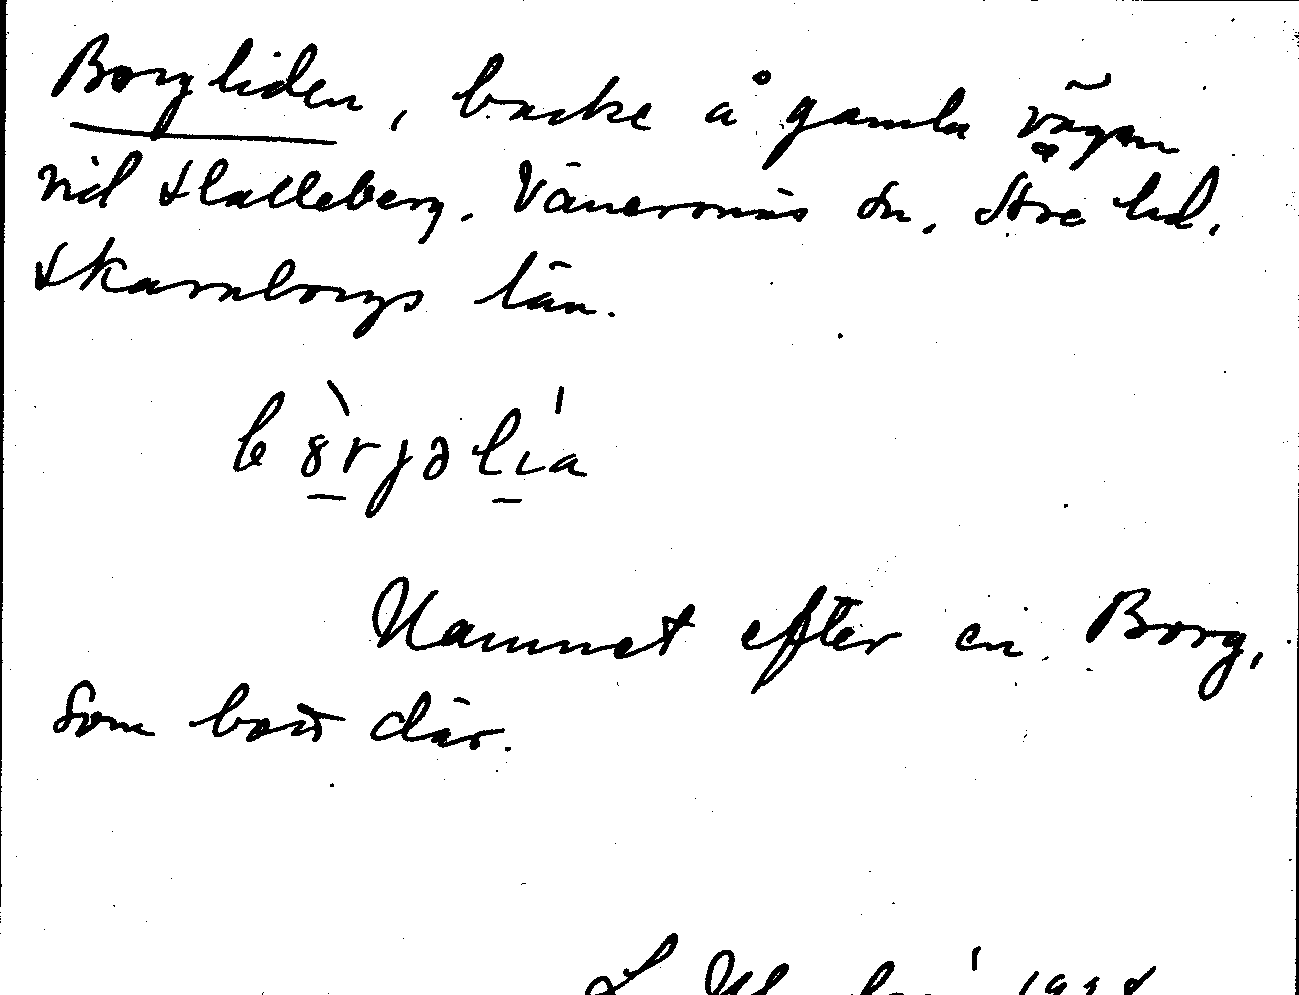 Borgliden, backe å gamla vägen
vid Halleberg. Vänersnäs sn. Åse hd.
Skaraborgs län.
Namnet efter en Borg,
som bott där.